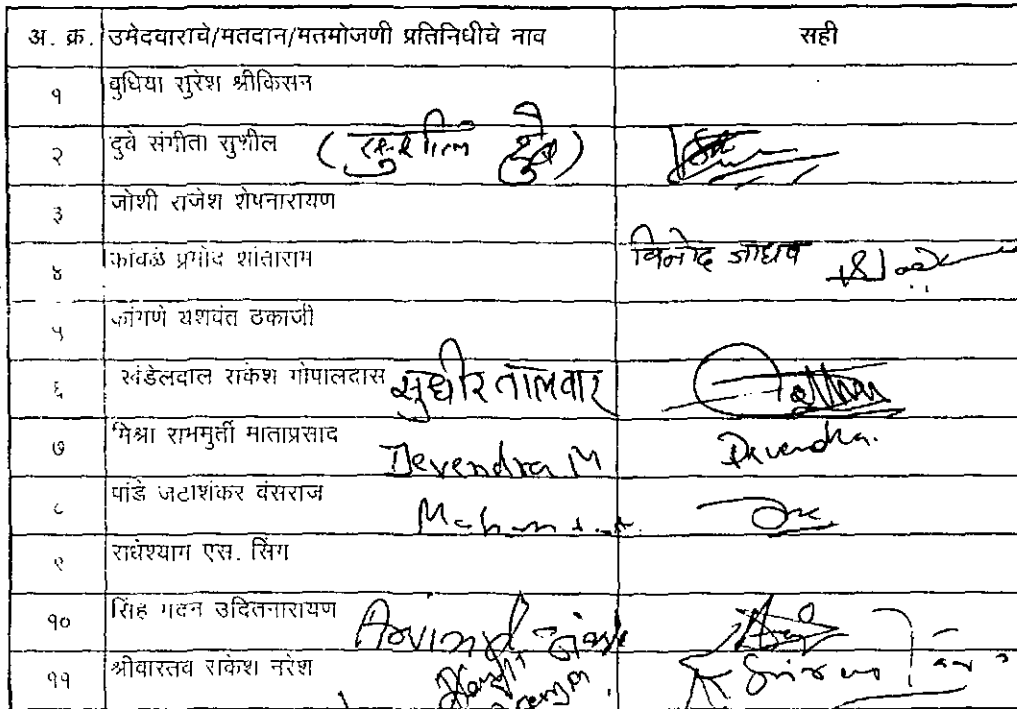 अ. क्र. उमेदवाराचे/मतदान/मतमोजणी प्रतिनिधीचे नाव सही
१ बुधिया सुरेश श्रीकिसन
२ दुवे संगीता सुशील (सुशील दुबे)
३ जोशी राजेश शेषनारायण
४ कांवळे प्रमोद शांताराम विनोद जाधव
५ कांगणे यशवंत ठकाजी
६ खंडेलवाल राकेश गोपालदास सुधीर तालवार
७ मिश्रा राममुर्ती माताप्रसाद Devendra M Devendra.
८ पांडे जटाशंकर वंसराज
९ राधेश्याम एस. सिंग
१० सिंह मदन उदितनारायण Arvind
११ श्रीवास्तव राकेश नरेश